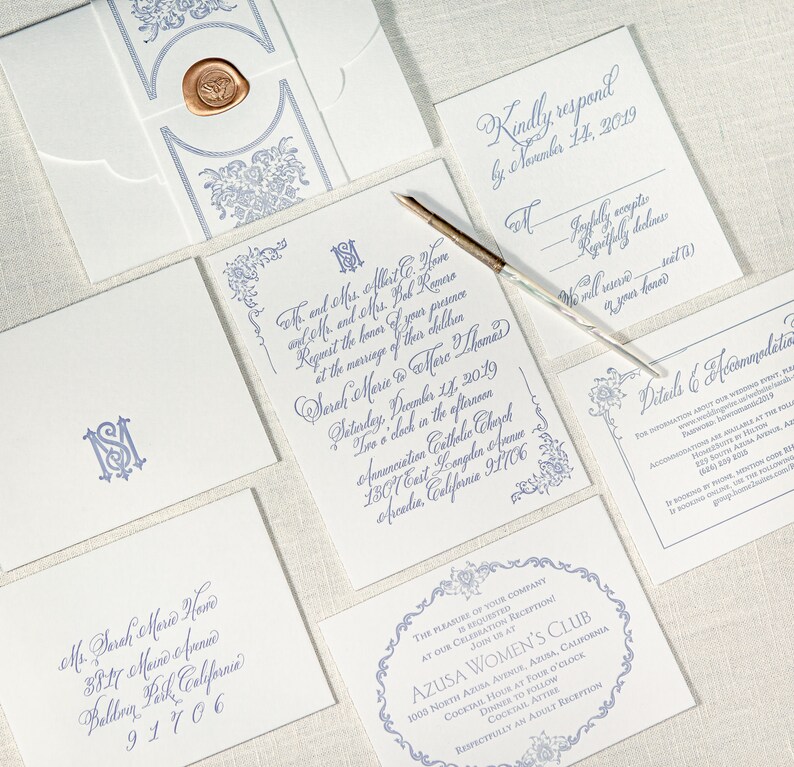 Kindly respond
by November 14, 2019
M
Joyfully accepts
Regretfully declines
We will reserve ___ seat(s)
in your honor
MS
Mr. and Mrs. Albert C. Howe
and Mr. and Mrs. Bob Romero
Request the honor of your presence
at the marriage of their children
Sarah Marie to Marc Thomas
Saturday, December 14, 2019
Two o'clock in the afternoon
Annunciation Catholic Church
1307 East Longden Avenue
Arcadia, California 91706
Details & Accommodation
For information about our wedding event, plea
www.weddingwire.us/website/sarah-
Password: howromantic2019
Accommodations are available at the follo
Home2Suite by Hilton
229 South Azusa Avenue, Az
(626) 239 2015
If booking by phone, mention code RH
If booking online, use the following
group.home2suites.com/R
MS
Ms. Sarah Marie Howe
3817 Maine Avenue
Baldwin Park, California
91706
The pleasure of your company
is requested
at our Celebration Reception!
Join us at
Azusa Women's Club
1008 North Azusa Avenue, Azusa, California
Cocktail Hour at Four o'clock
Dinner to follow
Cocktail Attire
Respectfully an Adult Reception